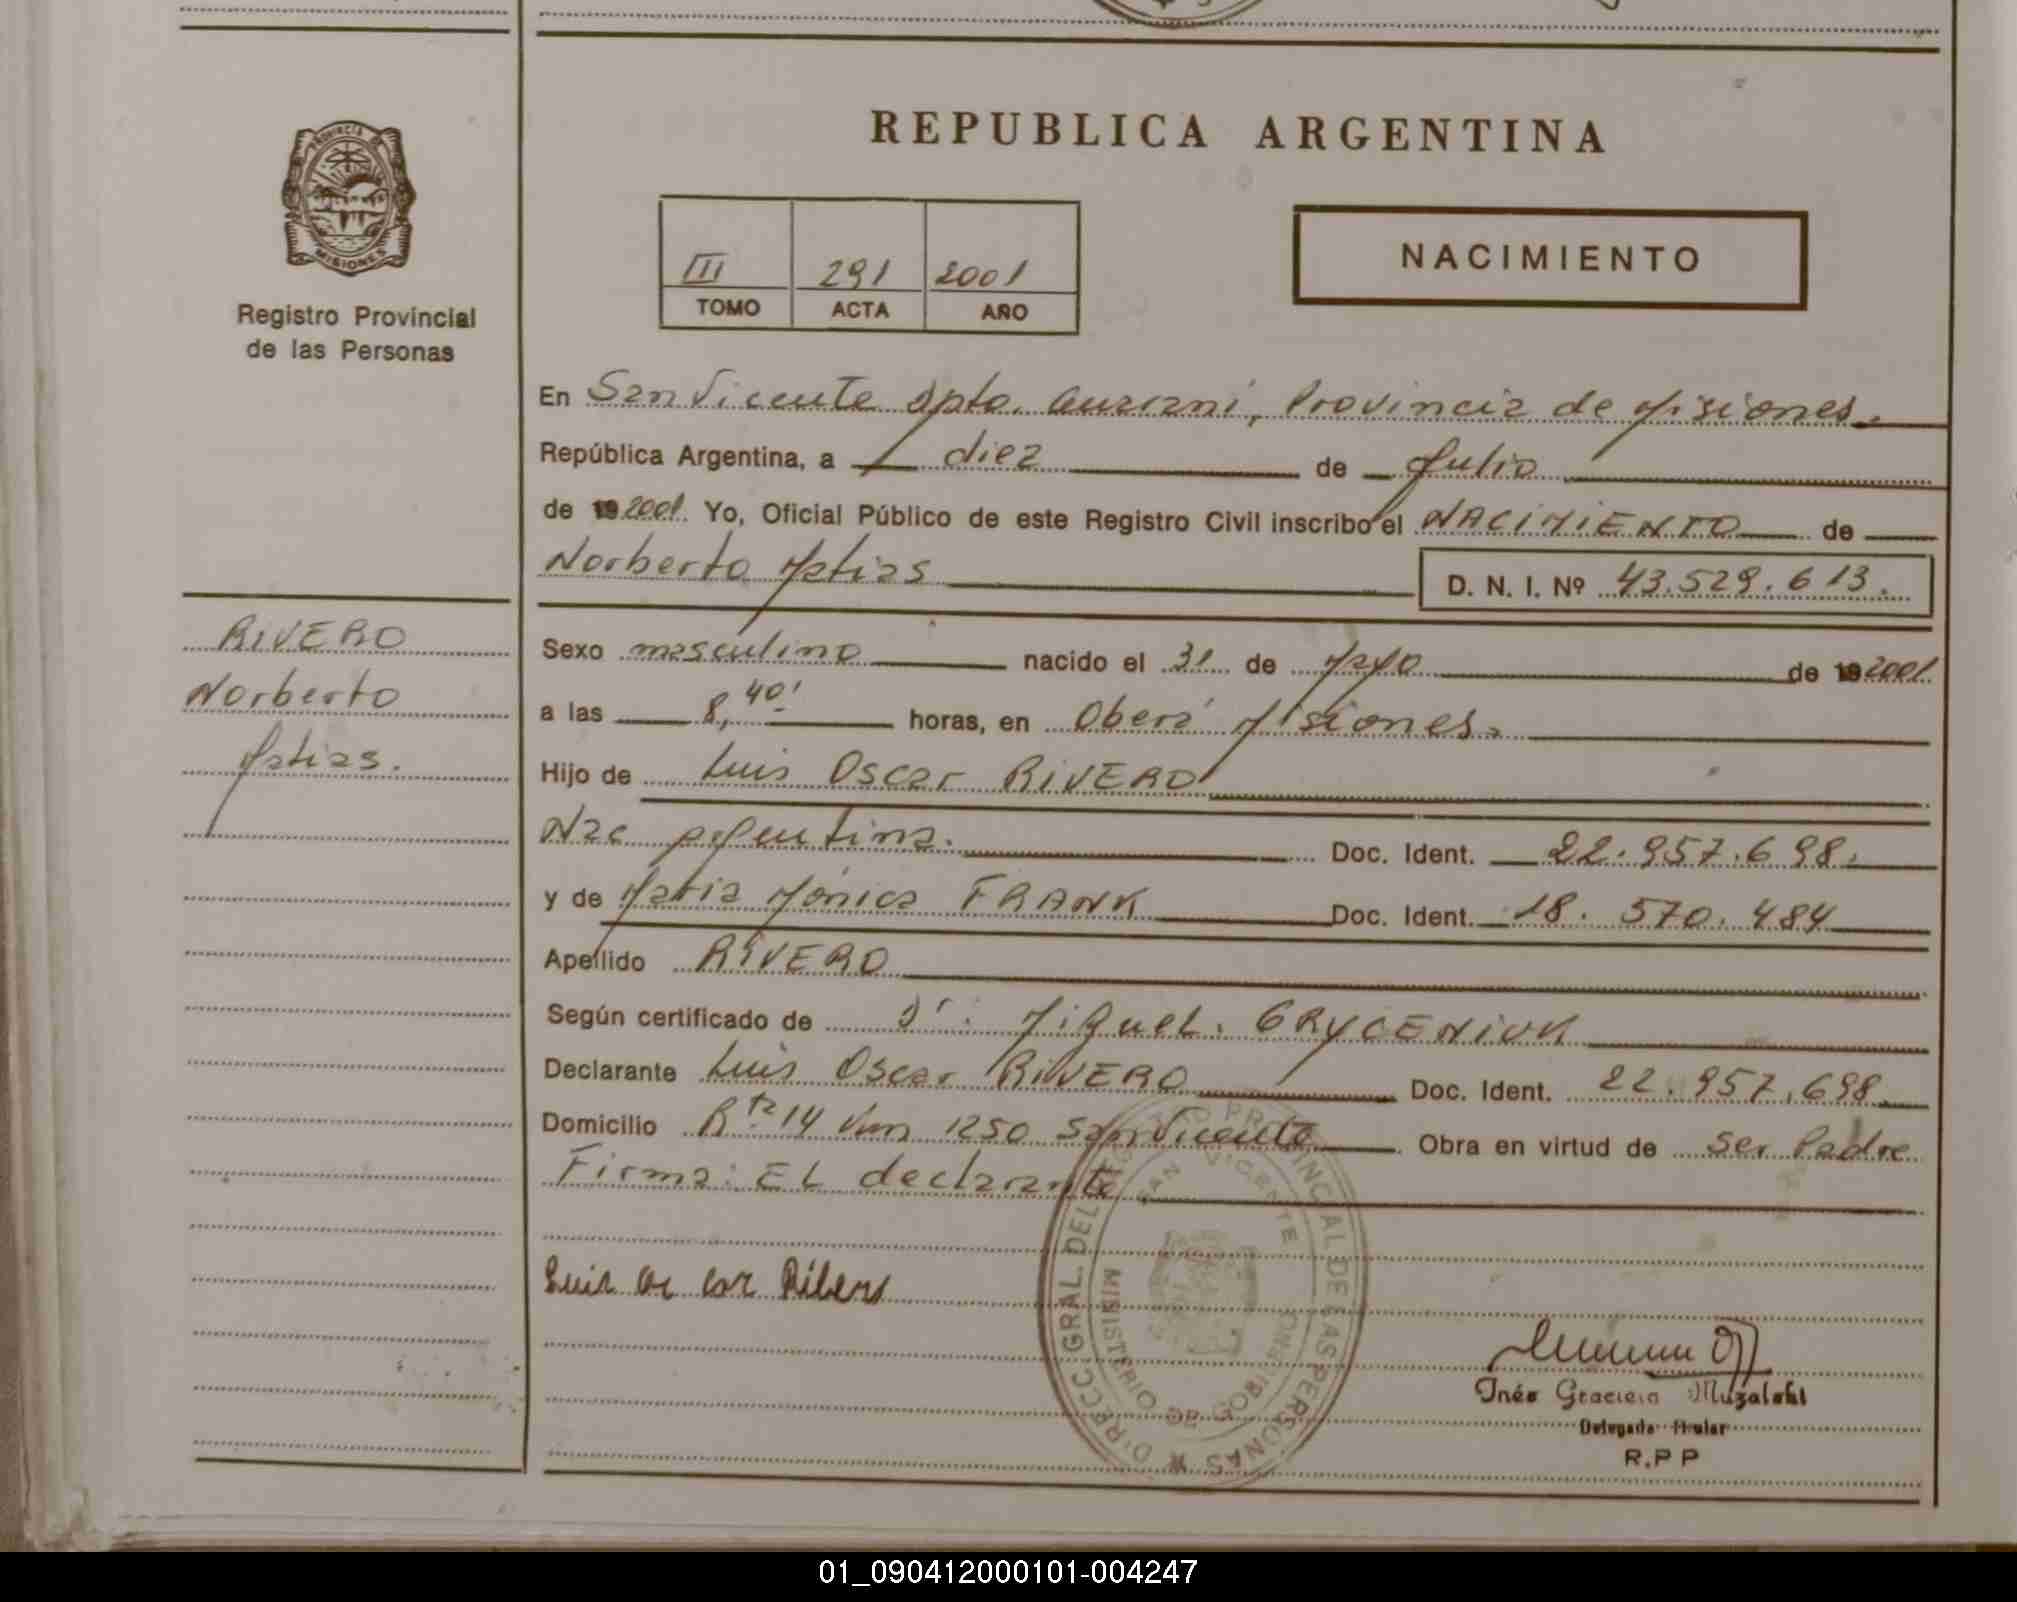 PROVINCIA DE
MISIONES
Registro Provincial
de las Personas
RIVERO
Norberto
Matias.
REPUBLICA ARGENTINA
III 291 2001
TOMO ACTA AÑO
NACIMIENTO
En San Vicente Dpto. Guarani, Provincia de Misiones.
República Argentina, a diez de Julio
de 19 2001. Yo, Oficial Público de este Registro Civil inscribo el NACIMIENTO de
Norberto Matias D. N. I. Nº 43.529.613.
Sexo masculino nacido el 31 de Mayo de 19 2001.
a las 8,40' horas, en Oberá Misiones.
Hijo de Luis Oscar RIVERO
Nac Argentina. Doc. Ident. 22.957.698.
y de Maria Mónica FRANK Doc. Ident. 18.570.484
Apellido RIVERO
Según certificado de Dr: Miguel. GRYCENIUK
Declarante Luis Oscar RIVERO Doc. Ident. 22.957.698.
Domicilio Rta 14 Km 1250 San Vicente Obra en virtud de Ser Padre
Firma: EL declarante
DIRECC. GRAL. DEL REGISTRO PROVINCIAL DE LAS PERSONAS
SAN VICENTE
MINISTERIO DE GOBIERNO
Luis Os car Ribero
Inés Graciela Muzalski
Delegada Titular
R.P P
01_090412000101-004247